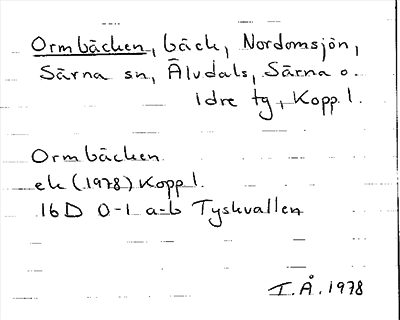 Ormbäcken, bäck, Nordomsjön,
Särna sn, Älvdals, Särna o.
Idre tg, Kopp. l.
Ormbäcken
ek (1978) Kopp l.
16D 0-1 a-b Tyskvallen
I.Å. 1978